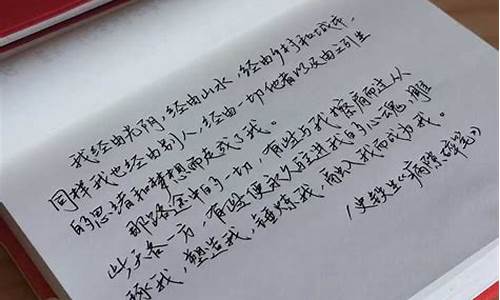 我经由光阴,经由山水,经由乡村和城市,
同样我也经由别人,经由一切他者以及由之引生
的思绪和梦想而走成了我。
那路途中的一切,有些与我擦肩而过从
此天各一方,有些便永久驻进我的心魂,雕
琢我,塑造我,锤炼我,融入我而成为我。
(史铁生《病隙碎笔》)